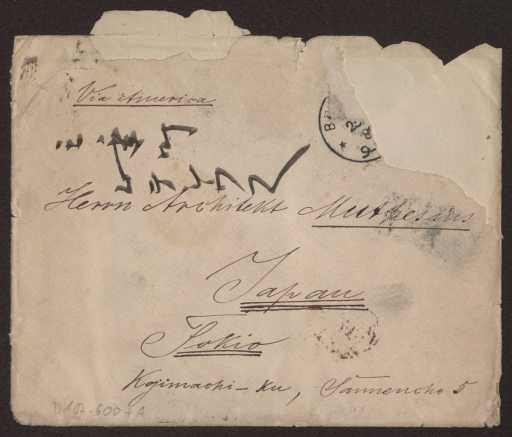 Via America
Herrn Architekt Muthesius
Japan
Tokio
Kojimachi-ku, Sannencho 5